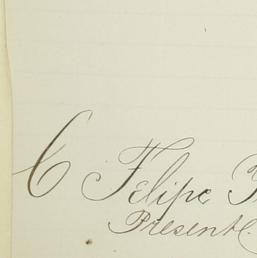 C Felipe
Presente.